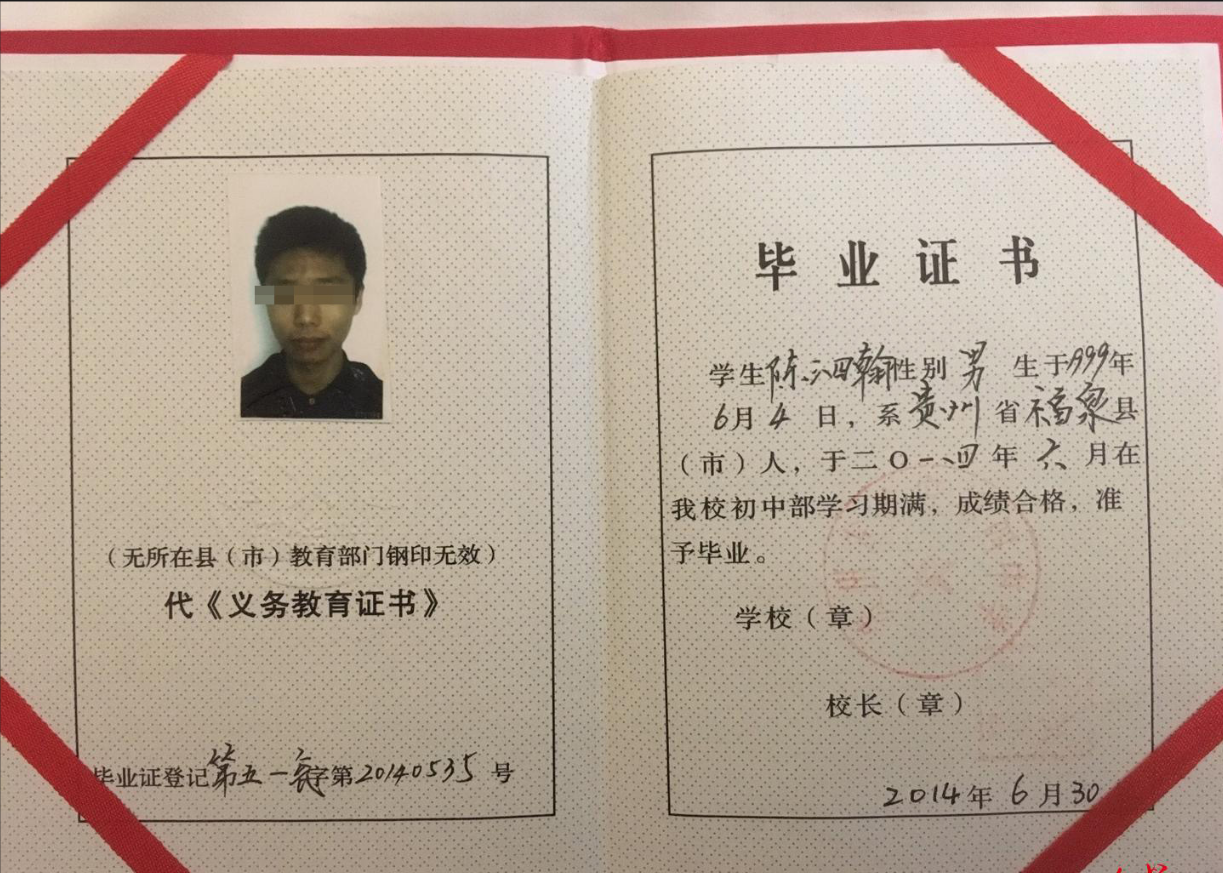 (无所在县(市)教育部门钢印无效)
代《义务教育证书》
毕业证登记第五一 字第20140535 号
毕业证书
学生陈 四翰性别 男 生于1999年
6月 4 日,系贵州 省福泉县
(市)人,于二〇一四年 六 月在
我校初中部学习期满,成绩合格,准
予毕业。
学校(章)
校长(章)
2014年 6 月30